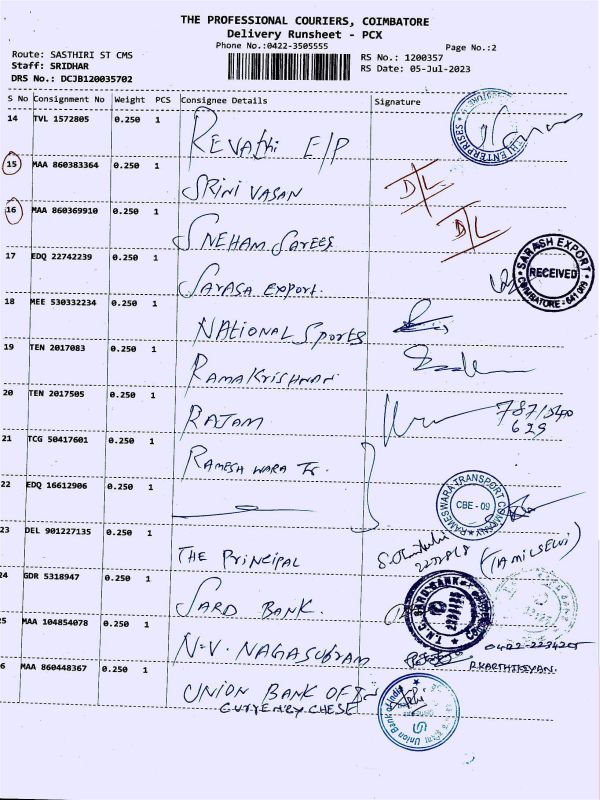 THE PROFESSIONAL COURIERS, COIMBATORE
Delivery Runsheet - PCX
Phone No.:0422-3505555
Page No.:2
Route: SASTHIRI ST CMS
Staff: SRIDHAR
DRS No.: DCJB120035702
RS No.: 1200357
RS Date: 05-Jul-2023
S No Consignment No Weight PCS Consignee Details Signature
14 TVL 1572805 0.250 1 Revathi E/P
ENTERPRISES
15 MAA 860383364 0.250 1 SRINIVASAN D/L
16 MAA 860369910 0.250 1 SNEHAM Sarees D/L
17 EDQ 22742239 0.250 1 Sarasa Export.
SARASH EXPORT RECEIVED COIMBATORE
18 MEE 530332234 0.250 1 NATIONAL Sports
19 TEN 2017083 0.250 1 RAMAKRISHNAN
20 TEN 2017505 0.250 1 RAJAM
629
21 TCG 50417601 0.250 1 RAMESHWARA Tr.
22 EDQ 16612906 0.250 1
RAMESWARA TRANSPORT COMPANY CBE - 09
23 DEL 901227135 0.250 1 THE Principal
(TAMILSELVI)
24 GDR 5318947 0.250 1 SARD BANK.
T.N.C. SARD BANK
25 MAA 104854078 0.250 1 N.V. NAGASUBRAM
0422-2234205
P.KARTHIKEYAN.
26 MAA 860448367 0.250 1 UNION BANK OF IN
CURRENCY CHESE
Union Bank of India